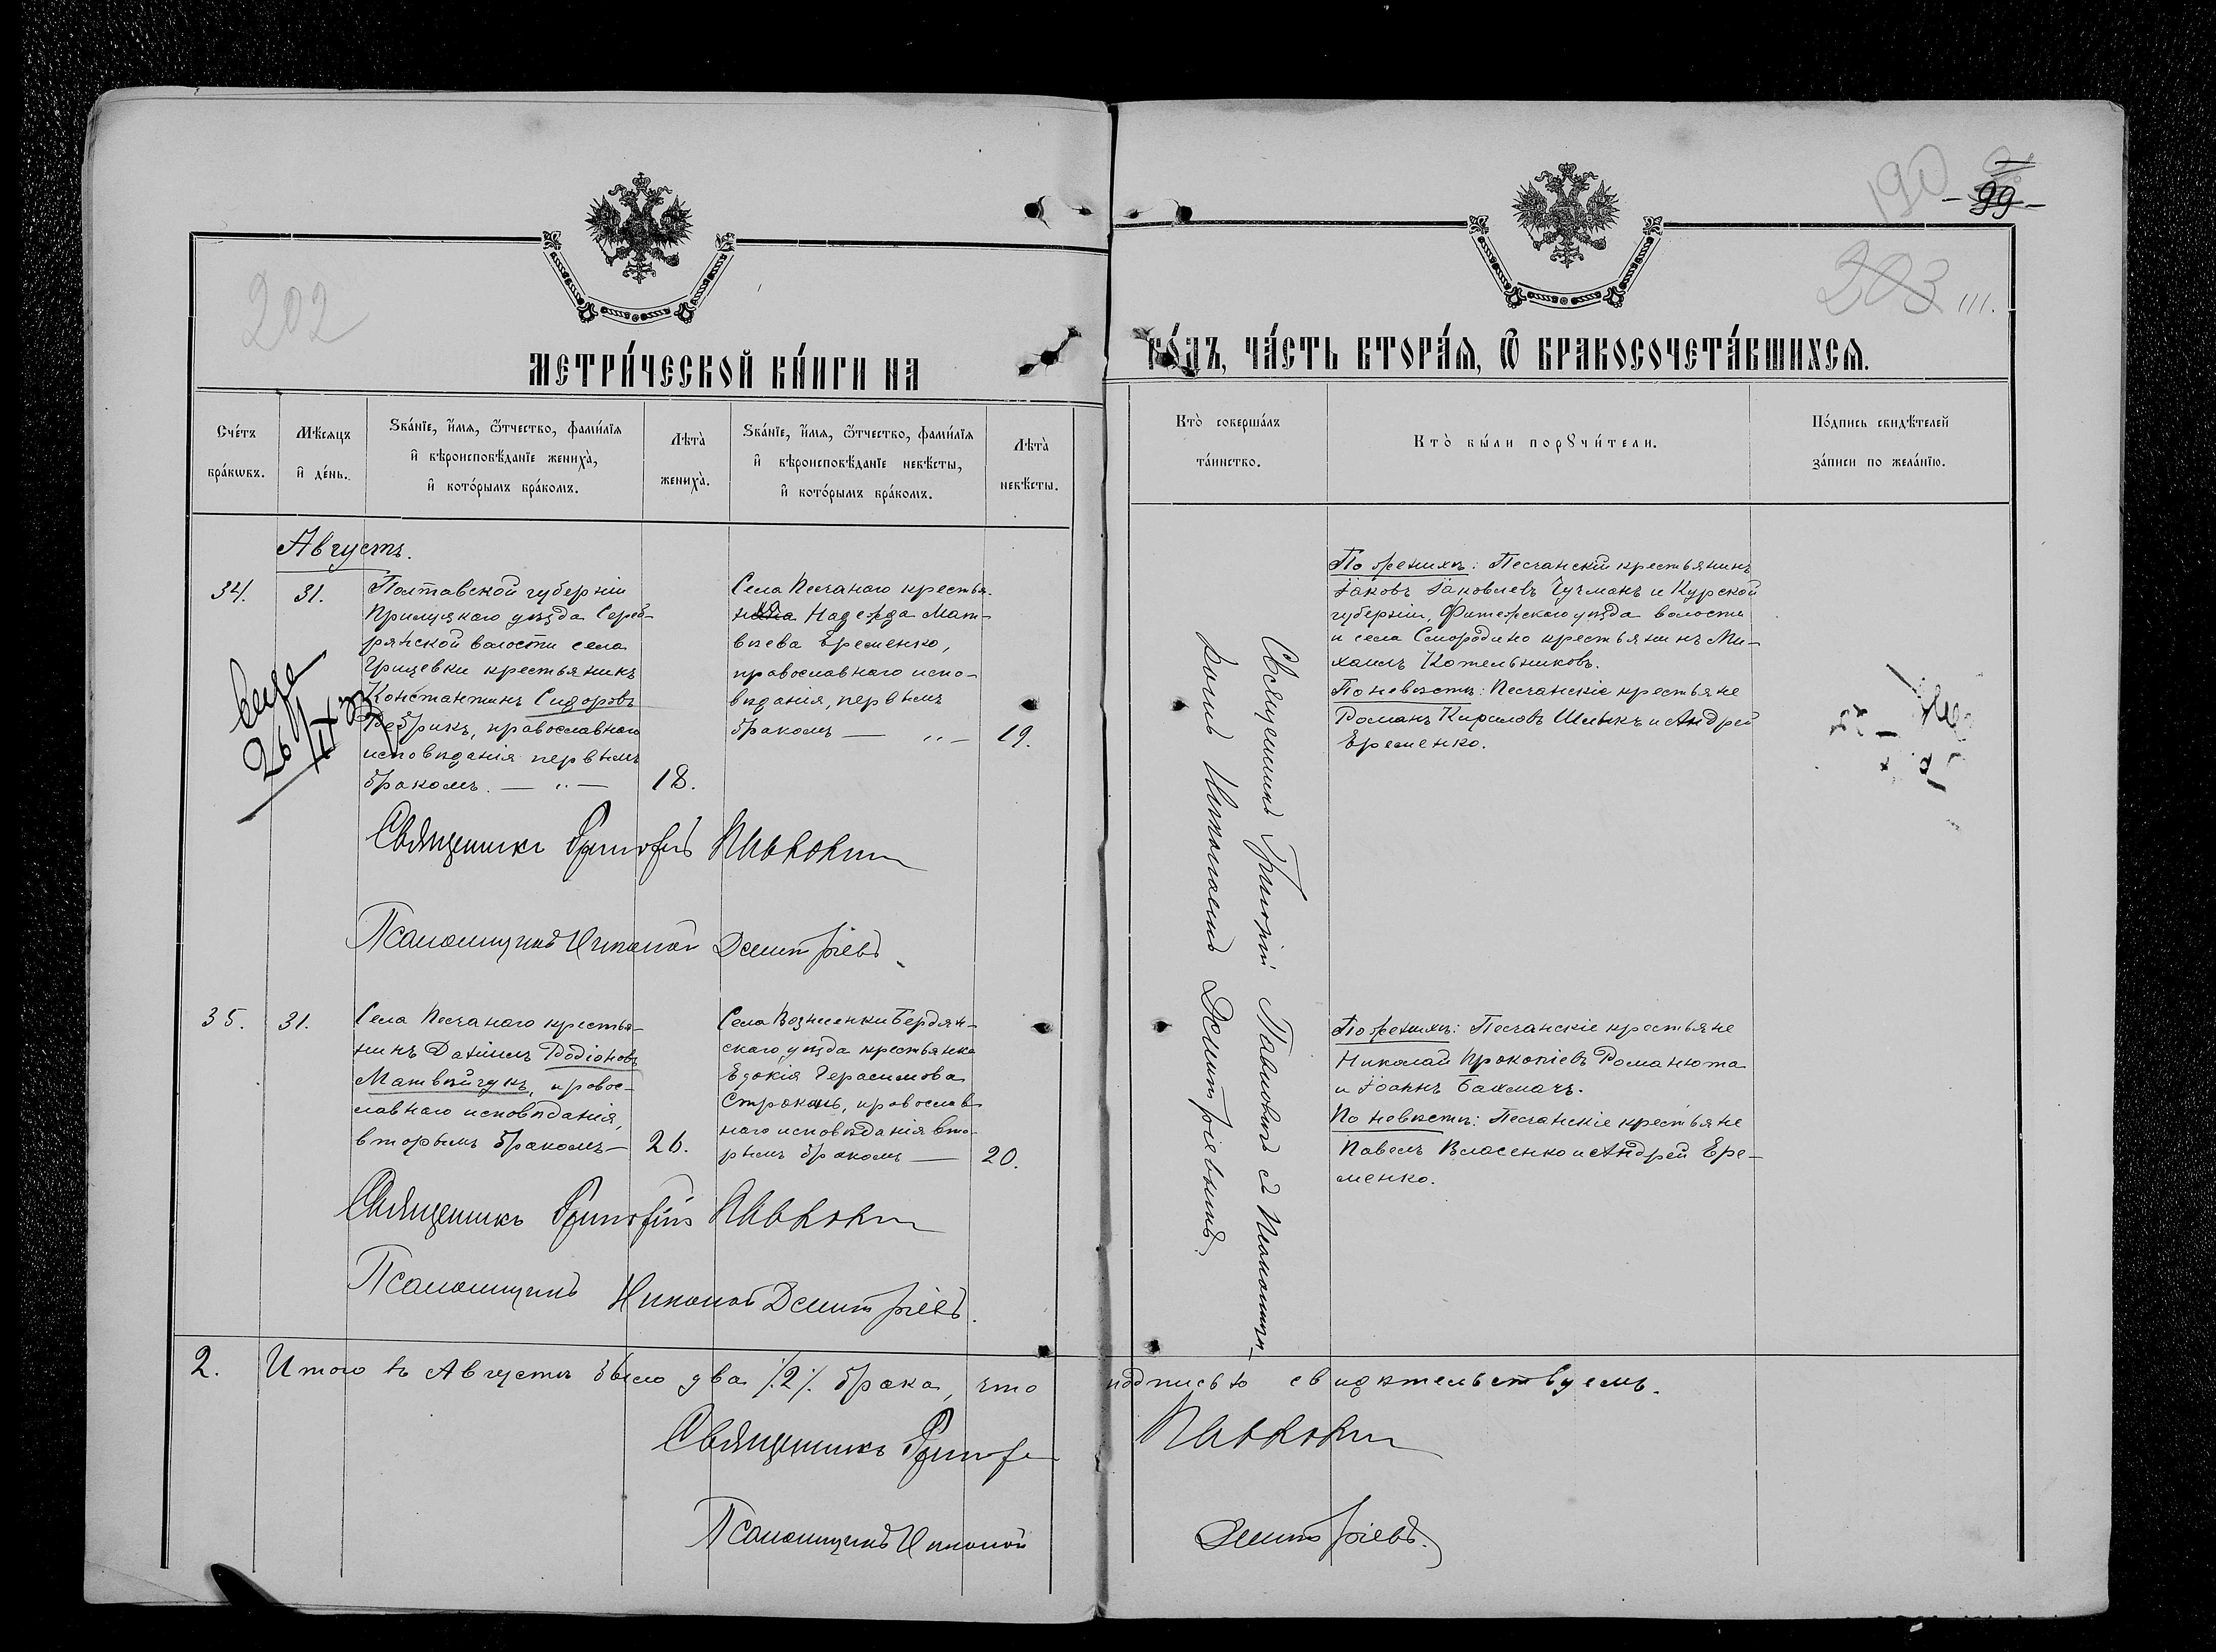 202
190
- 99 -
203
111.
МЕТРИ́ЧЕСКОЙ КНИ́ГИ НА
ГО́ДЪ, ЧА́СТЬ ВТОРА́Я, Ѿ БРАКОСОЧЕТА́ВШИХСЯ.
Сче́тъ
бра́кѡвъ.
Мѣ́сяцъ
и҆ де́нь.
Ѕва́нїе, и҆́мя, ѻ҆́тчество, фами́лїя
и҆ вѣроисповѣ́данїе жениха̀,
и҆ кото́рымъ бра́комъ.
Лѣта̀
жениха̀.
Ѕва́нїе, и҆́мя, ѻ҆́тчество, фами́лїя
и҆ вѣроисповѣ́данїе невѣ́сты,
и҆ кото́рымъ бра́комъ.
Лѣта̀
невѣ́сты.
Кто̀ соверша́лъ
та́инство.
Кто̀ бы́ли порꙋчи́тели.
По́дпись свидѣ́телей
за́писи по жела́нїю.
Августъ.
34.
31.
Полтавской губерніи
Прилуцкаго уѣзда Сереб-
рянской волости села
Грицевки крестьянинъ
Константинъ Сидоровъ
Ребрикъ, православнаго
исповѣданія первымъ
бракомъ. — „ —
18.
Села Песчанаго крестья-
Надежда Мат-
вѣева Еременко,
православнаго испо-
вѣданія, первымъ
бракомъ — „ —
19.
26
Священникъ Григорій Павловичъ съ Псаломщи-
комъ Николаемъ Дмитріевымъ.
По женихѣ: Песчанскій крестьянинъ
Іаковъ Іаковлевъ Чучманъ и Курской
губерніи, Фатежскаго уѣзда волости
и села Смородино крестьянинъ Ми-
хаилъ Котельниковъ.
По невѣстѣ: Песчанскіе крестьяне
Романъ Кириловъ Шлыкъ и Андрей
Еременко.
Священникъ Григорій
Псаломщикъ Николай Дмитріевъ
35.
31.
Села Песчанаго крестья-
нинъ Даніилъ Родіоновъ
Матвѣйчукъ, правос-
лавнаго исповѣданія,
вторымъ бракомъ —
26.
Села Вознесенки Бердян-
скаго уѣзда крестьянка
Евдокія Герасимова
Строкань, православ-
наго исповѣданія вто-
рымъ бракомъ —
20.
По женихѣ: Песчанскіе крестьяне
Николай Прокопіевъ Романюта
и Іоаннъ Бахмачъ.
По невѣстѣ: Песчанскіе крестьяне
Павелъ Власенко и Андрей Ере-
менко.
Священникъ Григорій
Псаломщикъ Николай Дмитріевъ.
2.
Итого въ Августѣ было два /.2/. брака, что подписью свидѣтельствуемъ.
Священникъ
Псаломщикъ Николай Дмитріевъ.